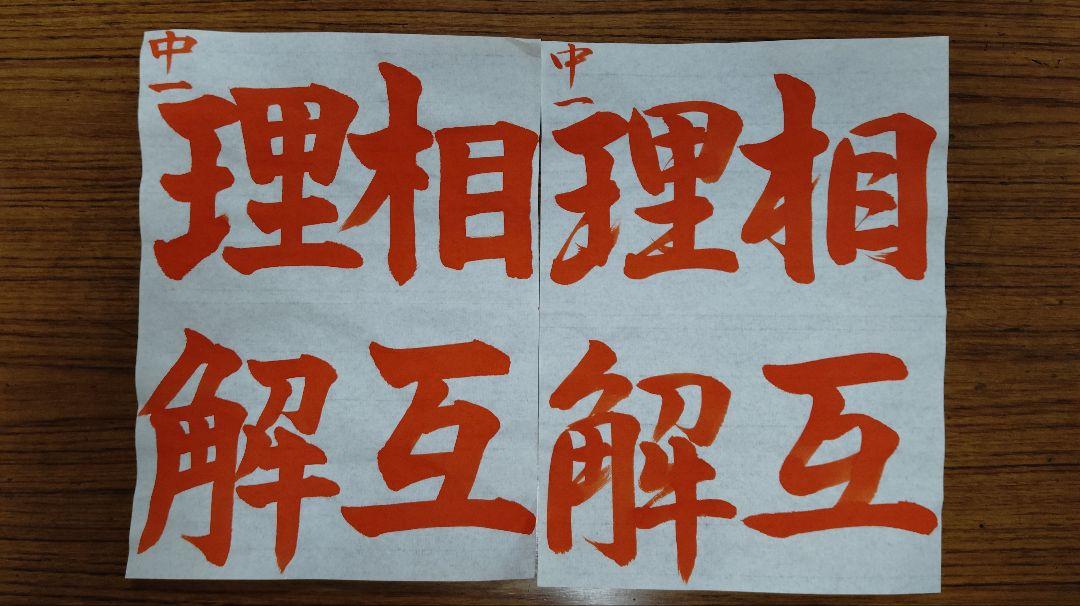 相互
理解
中一
相互
理解
中一